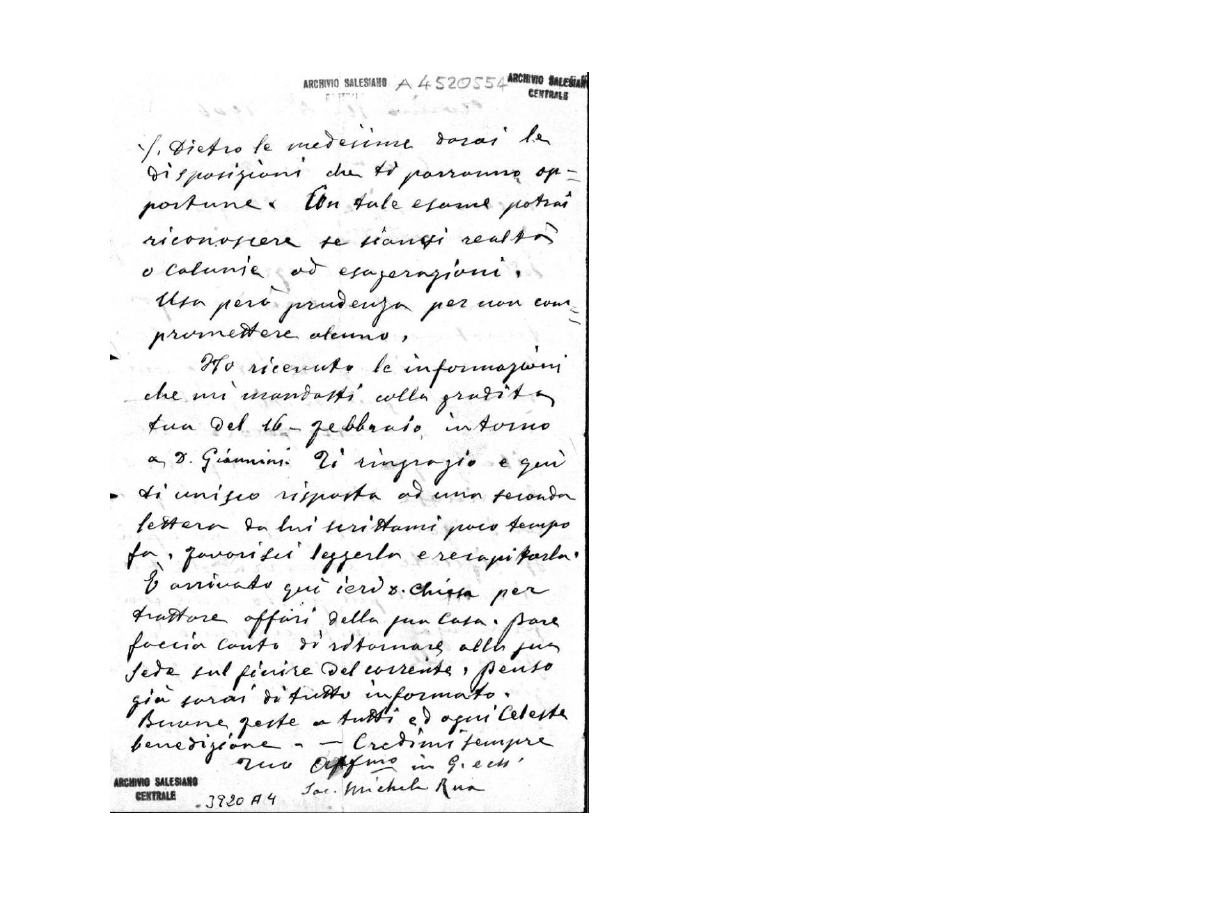 ARCHIVIO SALESIANO A4520554 ARCHIVIO SALESIANO
CENTRALE
·/. Dietro le medesime darai le
disposizioni che ti parranno op=
portune. Un tale esame potrai
riconoscere se siansi realtà
o calunie od esagerazioni.
Usa però prudenza per non com=
promettere alcuno.
Ho ricevuto le informazioni
che mi mandasti colla gradita
tua del 16 - febbraio intorno
a D. Giannini. Ti ringrazio e qui
ti unisco risposta ad una seconda
lettera da lui scrittami poco tempo
fa. Favorisci leggerla e recapitarla.
È arrivato qui ieri D. Chiesa per
trattare affari della sua Casa. Pare
faccia conto di ritornare alla sua
sede sul finire del corrente. Penso
già sarai di tutto informato.
Buone feste a tutti ed ogni Celeste
benedizione. - Credimi sempre
Tuo Affmo in G. e
Sac. Michele Rua
ARCHIVIO SALESIANO
CENTRALE
3920 A4